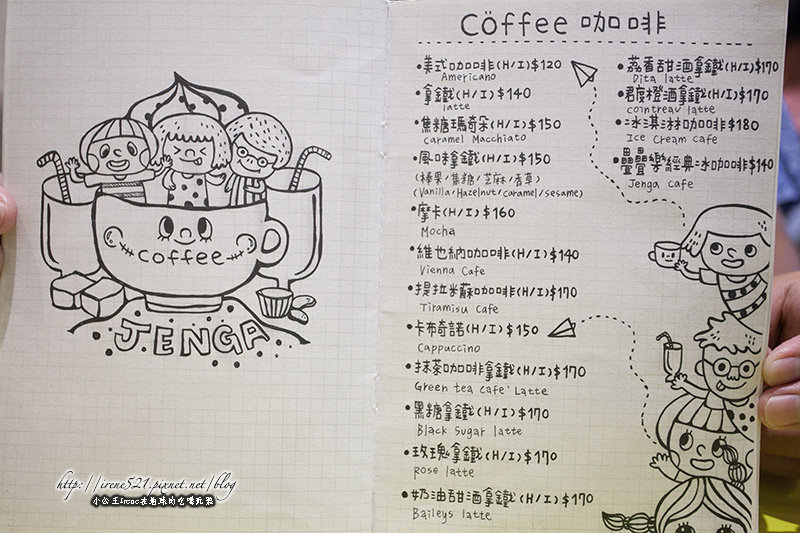 coffee
JENGA
http://irene521.pixnet.net/blog
小公主Irene在地球的吃喝玩樂
Cöffee 咖啡
•美式咖啡(H/I)$120
Americano
•拿鐵(H/I)$140
latte
•焦糖瑪奇朵(H/I)$150
caramel Macchiato
•風味拿鐵(H/I)$150
(榛果/焦糖/芝麻/香草)
(Vanilla/Hazelnut/caramel/sesame)
•摩卡(H/I)$160
Mocha
•維也納咖啡(H/I)$140
Vienna Cafe
•提拉米蘇咖啡(H/I)$170
Tiramisu Cafe
•卡布奇諾(H/I)$150
Cappuccino
•抹茶咖啡拿鐵(H/I)$170
Green tea Cafe' Latte
•黑糖拿鐵(H/I)$170
Black Sugar latte
•玫瑰拿鐵(H/I)$170
rose latte
•奶油甜酒拿鐵(H/I)$170
Baileys latte
•荔香甜酒拿鐵(H/I)$170
Dita latte
•君度橙酒拿鐵(H/I)$170
cointreau latte
•冰淇淋咖啡$180
Ice Cream cafe
•疊疊樂經典冰咖啡$140
Jenga cafe